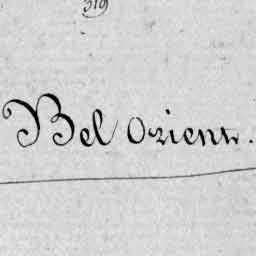 319
Bel Orient.